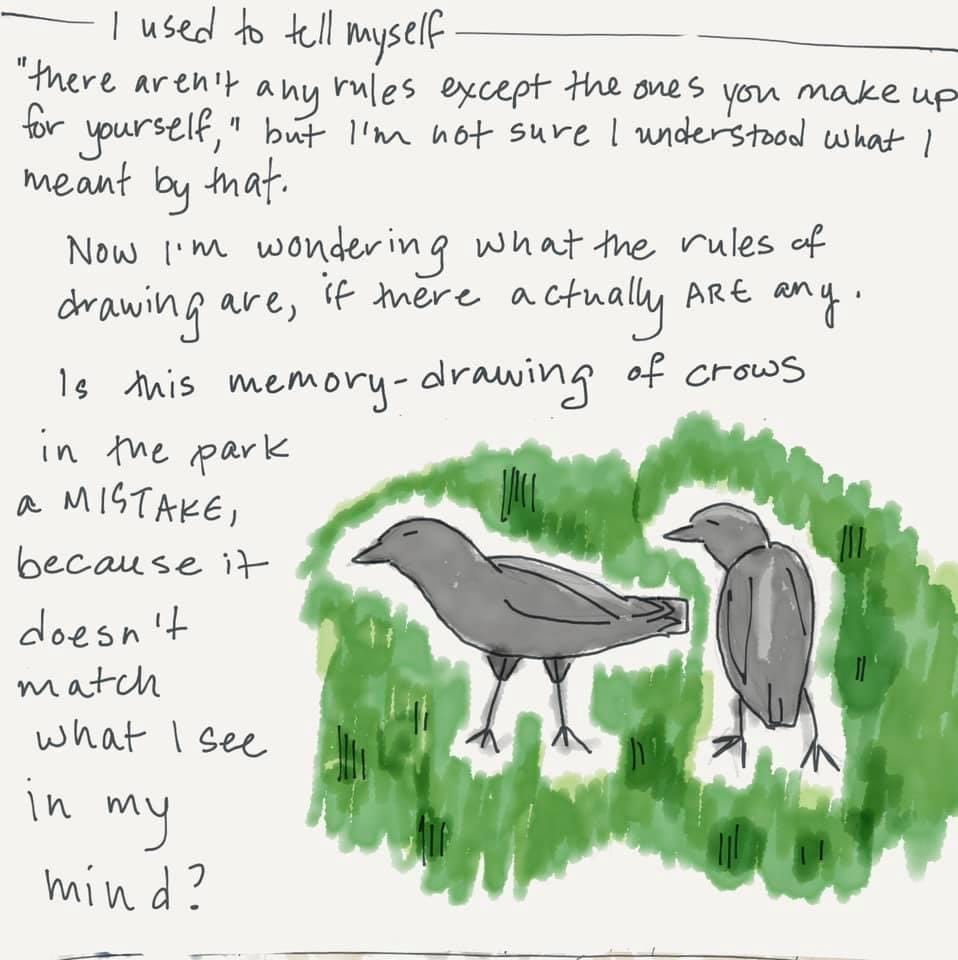 I used to tell myself
"there aren't any rules except the ones you make up
for yourself," but I'm not sure I understood what I
meant by that.
Now I'm wondering what the rules of
drawing are, if there actually ARE any.
Is this memory-drawing of crows
in the park
a MISTAKE,
because it
doesn't
match
what I see
in my
mind?